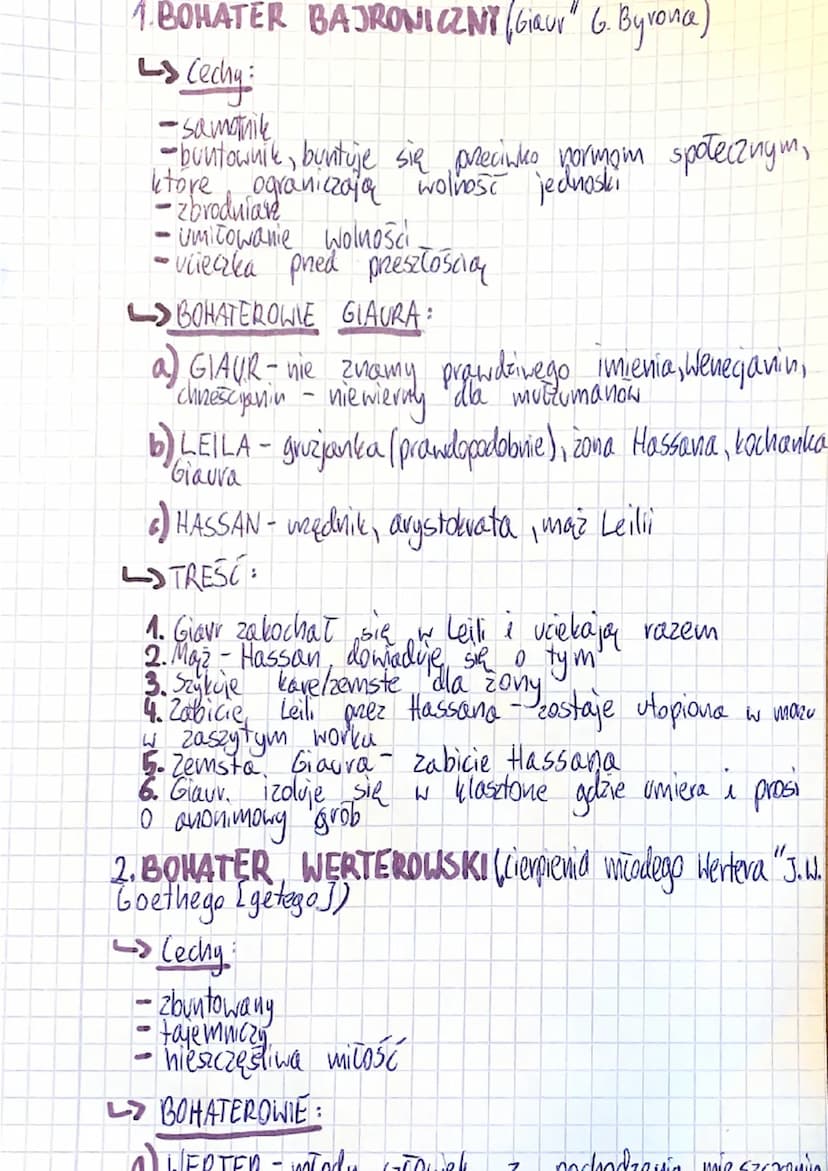 1. BOHATER BAJRONICZNY ("Giaur" G. Byrona)
↳ Cechy:
- samotnik
- buntownik, buntuje się przeciwko normom społecznym,
które ograniczają wolność jednoski
- zbrodniarz
- umiłowanie wolności
- ucieczka przed przeszłością
↳ BOHATEROWIE GIAURA:
a) GIAUR - nie znamy prawdziwego imienia, Wenecjanin,
chrześcijanin - niewierny dla mułzumanów
b) LEILA - gruzjanka (prawdopodobnie), żona Hassana, kochanka
Giaura
c) HASSAN - urzędnik, arystokrata, mąż Leilii
↳ TREŚĆ:
1. Giaur zakochał się w Leili i uciekają razem
2. Mąż - Hassan dowiaduje się o tym
3. Szykuje kare/zemste dla żony
4. Zabicie Leili przez Hassana - zostaje utopiona w morzu
w zaszytym worku
5. Zemsta Giaura - zabicie Hassana
6. Giaur izoluje się w klasztorze gdzie umiera i prosi
o anonimowy grób
2. BOHATER WERTEROWSKI (cierpienia młodego Wertera" J.W.
Goethego [getego])
↳ Cechy:
- zbuntowany
- tajemniczy
- nieszczęśliwa miłość
↳ BOHATEROWIE:
a) WERTER - młody człowiek z pochodzenia mieszczanin